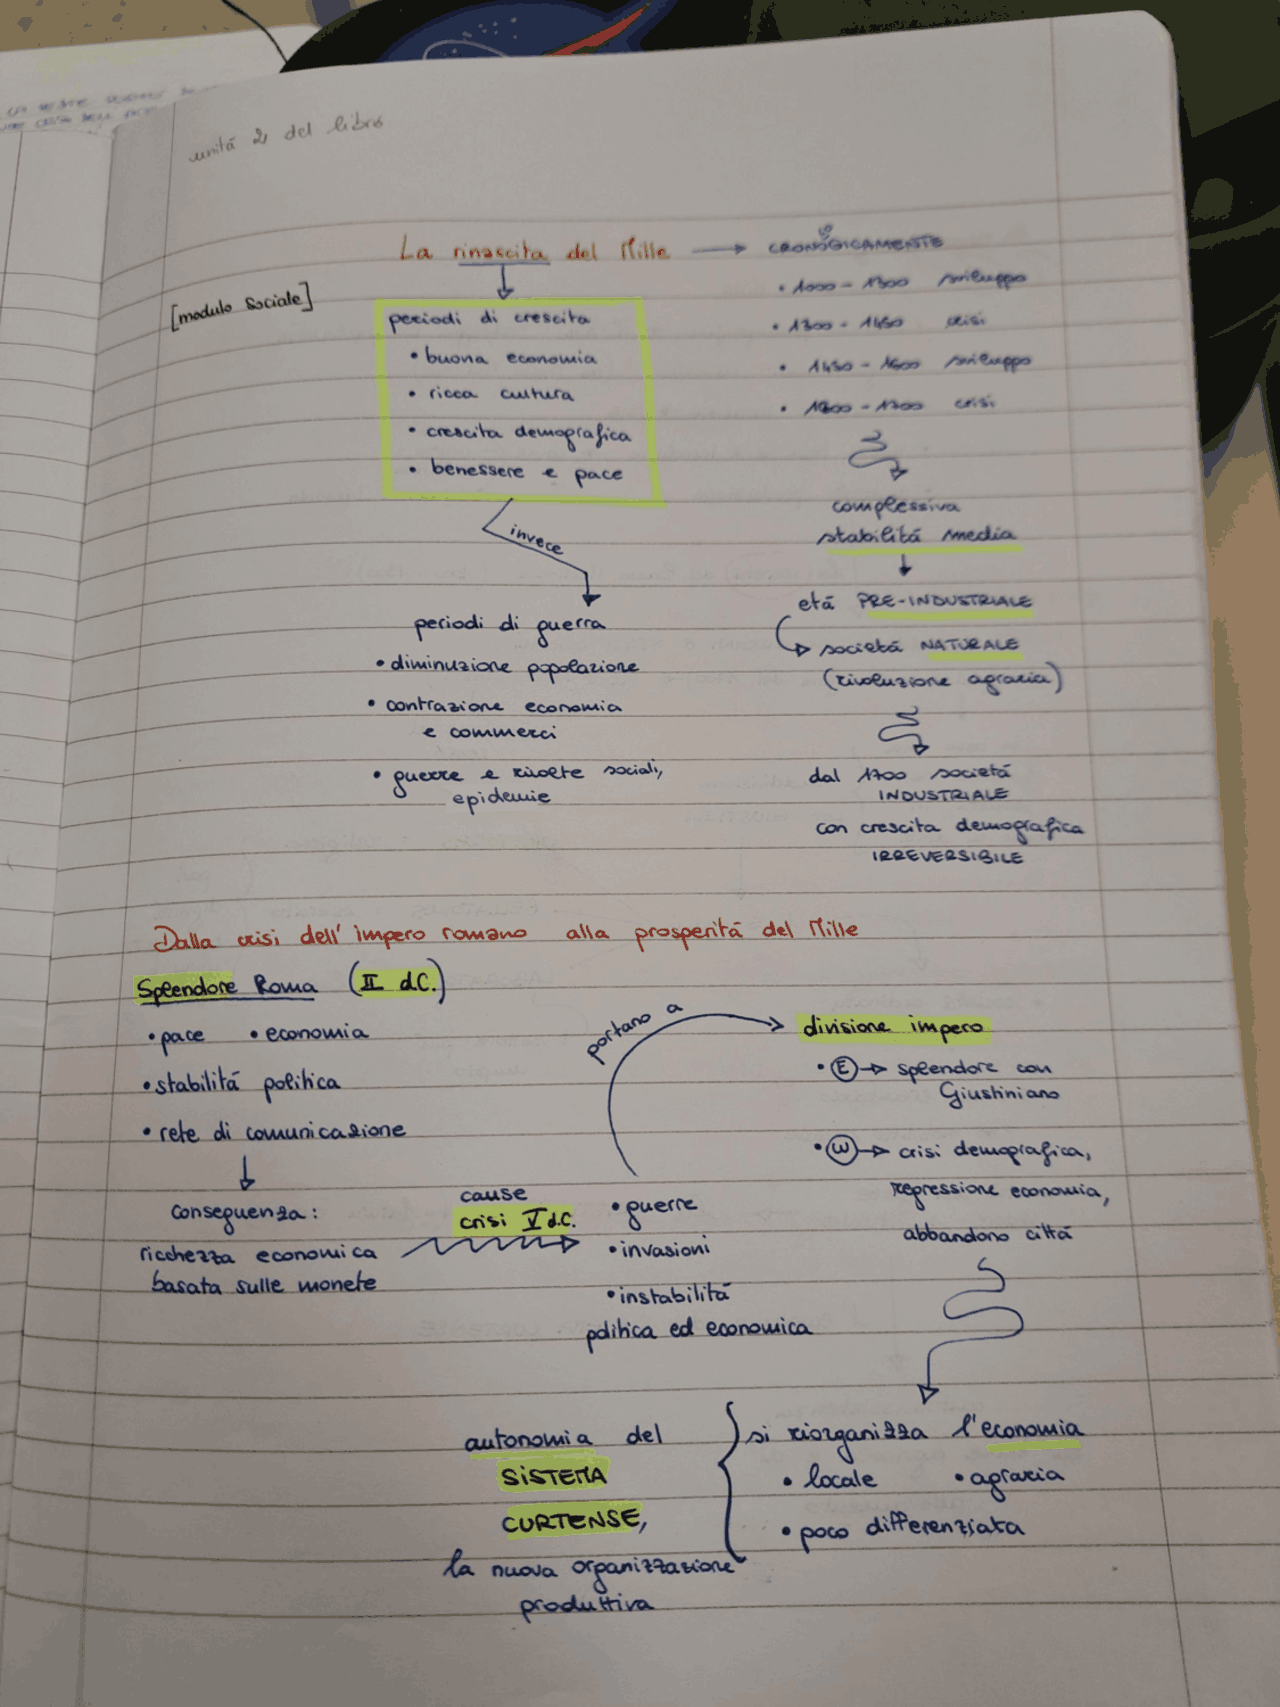 unitá 2 del libro
La rinascita del Mille → CRONOLOGICAMENTE
[modulo sociale]
periodi di crescita
• buona economia
• ricca cultura
• crescita demografica
• benessere e pace
• 1000 - 1300 sviluppo
• 1300 - 1450 crisi
• 1450 - 1600 sviluppo
• 1600 - 1700 crisi
complessiva
stabilitá media
etá PRE-INDUSTRIALE
societá NATURALE
(rivoluzione agraria)
dal 1700 societá
INDUSTRIALE
con crescita demografica
IRREVERSIBILE
invece
periodi di guerra
• diminuzione popolazione
• contrazione economia
e commerci
• guerre e rivolte sociali,
epidemie
Dalla crisi dell'impero romano alla prosperitá del Mille
Splendore Roma (II d.C.)
• pace • economia
• stabilitá politica
• rete di comunicazione
conseguenza:
ricchezza economica
basata sulle monete
cause
crisi V d.C.
• guerre
• invasioni
• instabilitá
politica ed economica
portano a
divisione impero
• E → splendore con
Giustiniano
• W → crisi demografica,
regressione economia,
abbandono cittá
si riorganizza l'economia
• locale • agraria
• poco differenziata
autonomia del
SISTEMA
CURTENSE,
la nuova organizzazione
produttiva